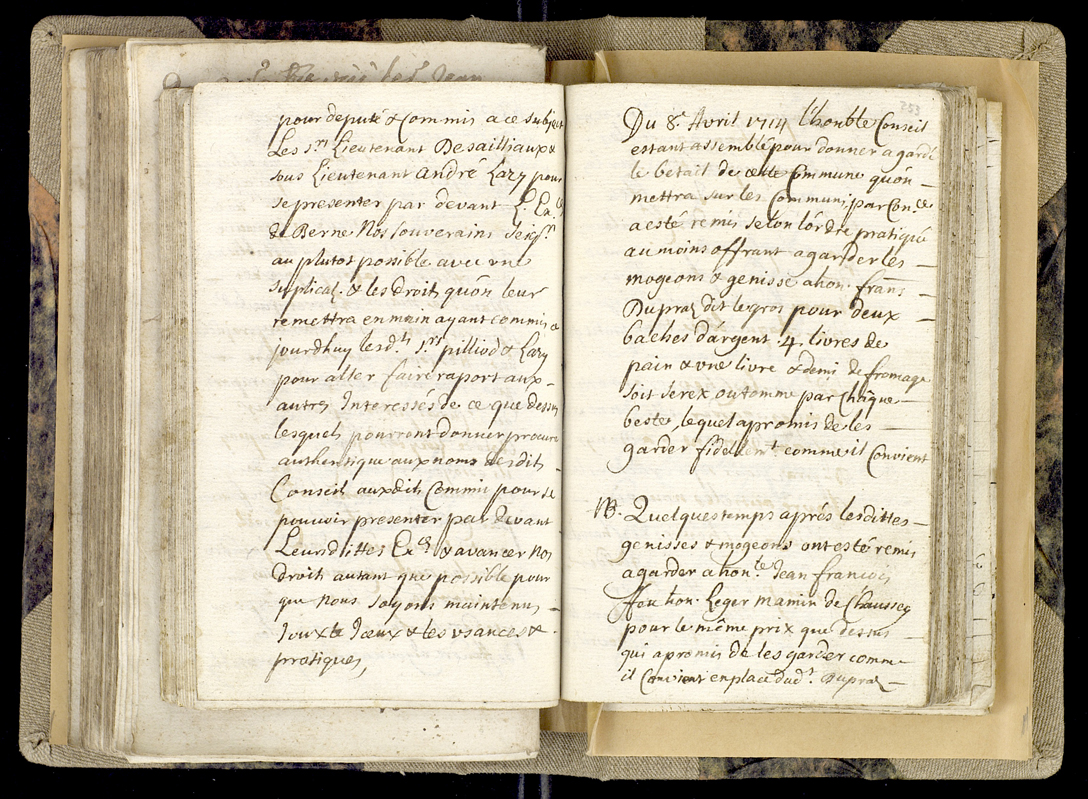 pour deputé & Commis a ce subject
Les srs Lieutenant Desailliaux &
sous Lieutenant André Lazy pour
se presenter par devant L. Ex.ces
de Berne Nos souverains seigrs
au plutot possible avec une
suplicaõ. & les droits quón leur
remettra en main ayant commis a
jourdhuy lesd.ts srs pilliod & Lazy
pour aller faire raport aux -
autres Interessés de ce que dessus
lesquels pourront donner procura
authentique aux noms desdits
Conseils auxdits Commis pour se
pouvoir presenter par devant
Leursdittes Ex.ces & avancer Nos
droits autant que possible pour
que Nous soÿons maintenus
Jouxte Iceux & les usances &
pratiques,
Du 8.e Avril 1714 l'honble Conseil
estant assemblé pour donner a garde
le betail de cette Commune quón -
mettra sur les Communs, par Con.le
a esté remis selon lórdre pratiqué
au moins offrant a garder les -
mogeons & genisse a hon. frans -
Dupraz dit le gros pour deux
baches dárgent .4. livres de
pain & une livre & demi de fromage
soit serex ou tomme par Chàque -
beste, lequel a promis de les -
garder fidellem.t comme il Convient
NB. Quelques temps aprés lesdittes -
genisses & mogeons ont esté remis
a garder a hon.le Jean francois
ffeu hon. Leger mamin de Chaussey
pour le même prix que dessus
qui a promis de les garder comme
il Convient en place dud.t Dupraz -